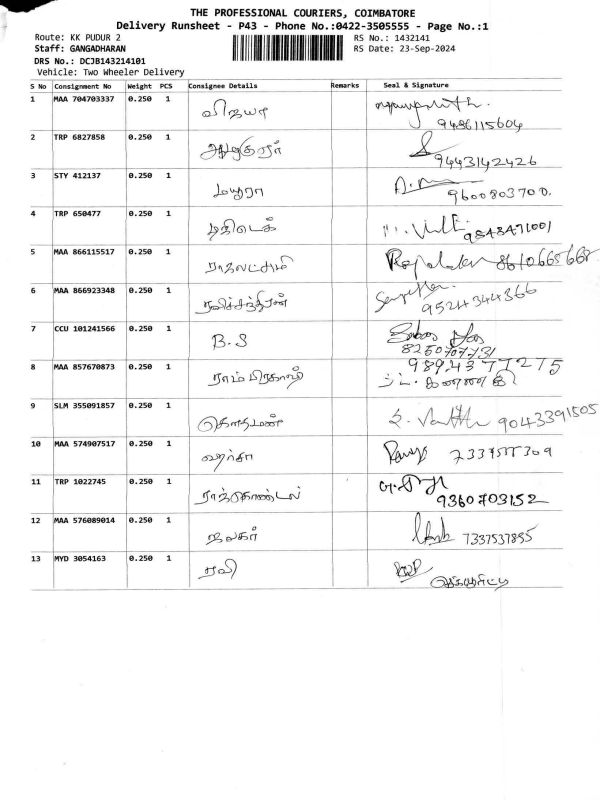 THE PROFESSIONAL COURIERS, COIMBATORE
Delivery Runsheet - P43 - Phone No.:0422-3505555 - Page No.:1
Route: KK PUDUR 2 RS No.: 1432141
Staff: GANGADHARAN RS Date: 23-Sep-2024
DRS No.: DCJB143214101
Vehicle: Two Wheeler Delivery
S No Consignment No Weight PCS Consignee Details Remarks Seal & Signature
1 MAA 704703337 0.250 1 விஜயா
9486115604
2 TRP 6827858 0.250 1
9443142426
3 STY 412137 0.250 1 மயூரா
9600803700.
4 TRP 650477 0.250 1
9848471001
5 MAA 866115517 0.250 1 ராஜலட்சுமி 8610665668
6 MAA 866923348 0.250 1 ரவிச்சந்திரன்
9524344366
7 CCU 101241566 0.250 1 B.S
8250707731
9894377275
8 MAA 857670873 0.250 1 ராம் பிரகாஷ்
9 SLM 355091857 0.250 1 கௌதமன் 9043391505
10 MAA 574907517 0.250 1 ஹர்சா
11 TRP 1022745 0.250 1
9360703152
12 MAA 576089014 0.250 1 7337537895
13 MYD 3054163 0.250 1 ரவி